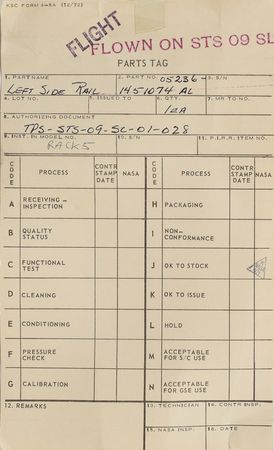 KSC FORM 4-8A (5/72)
FLIGHT
FLOWN ON STS 09 SL
PARTS TAG
1. PART NAME 2. PART NO. 05236- 3. S/N
LEFT SIDE RAIL 1451074 AL
4. LOT NO. 5. ISSUED TO 6. QTY. 7. MR TO NO.
1EA
8. AUTHORIZING DOCUMENT
TPS-STS-09-SL-01-028
9. INST. IN MODEL NO. 10. S/N 11. P.I.R.R. ITEM NO.
RACK 5
CODE PROCESS CONTR STAMP DATE NASA CODE PROCESS CONTR STAMP DATE NASA
A RECEIVING - INSPECTION H PACKAGING
B QUALITY STATUS I NON-CONFORMANCE
C FUNCTIONAL TEST J OK TO STOCK
D CLEANING K OK TO ISSUE
E CONDITIONING L HOLD
F PRESSURE CHECK M ACCEPTABLE FOR S/C USE
G CALIBRATION N ACCEPTABLE FOR GSE USE
12. REMARKS 13. TECHNICIAN 14. CONTR INSP.
15. NASA INSP. 16. DATE